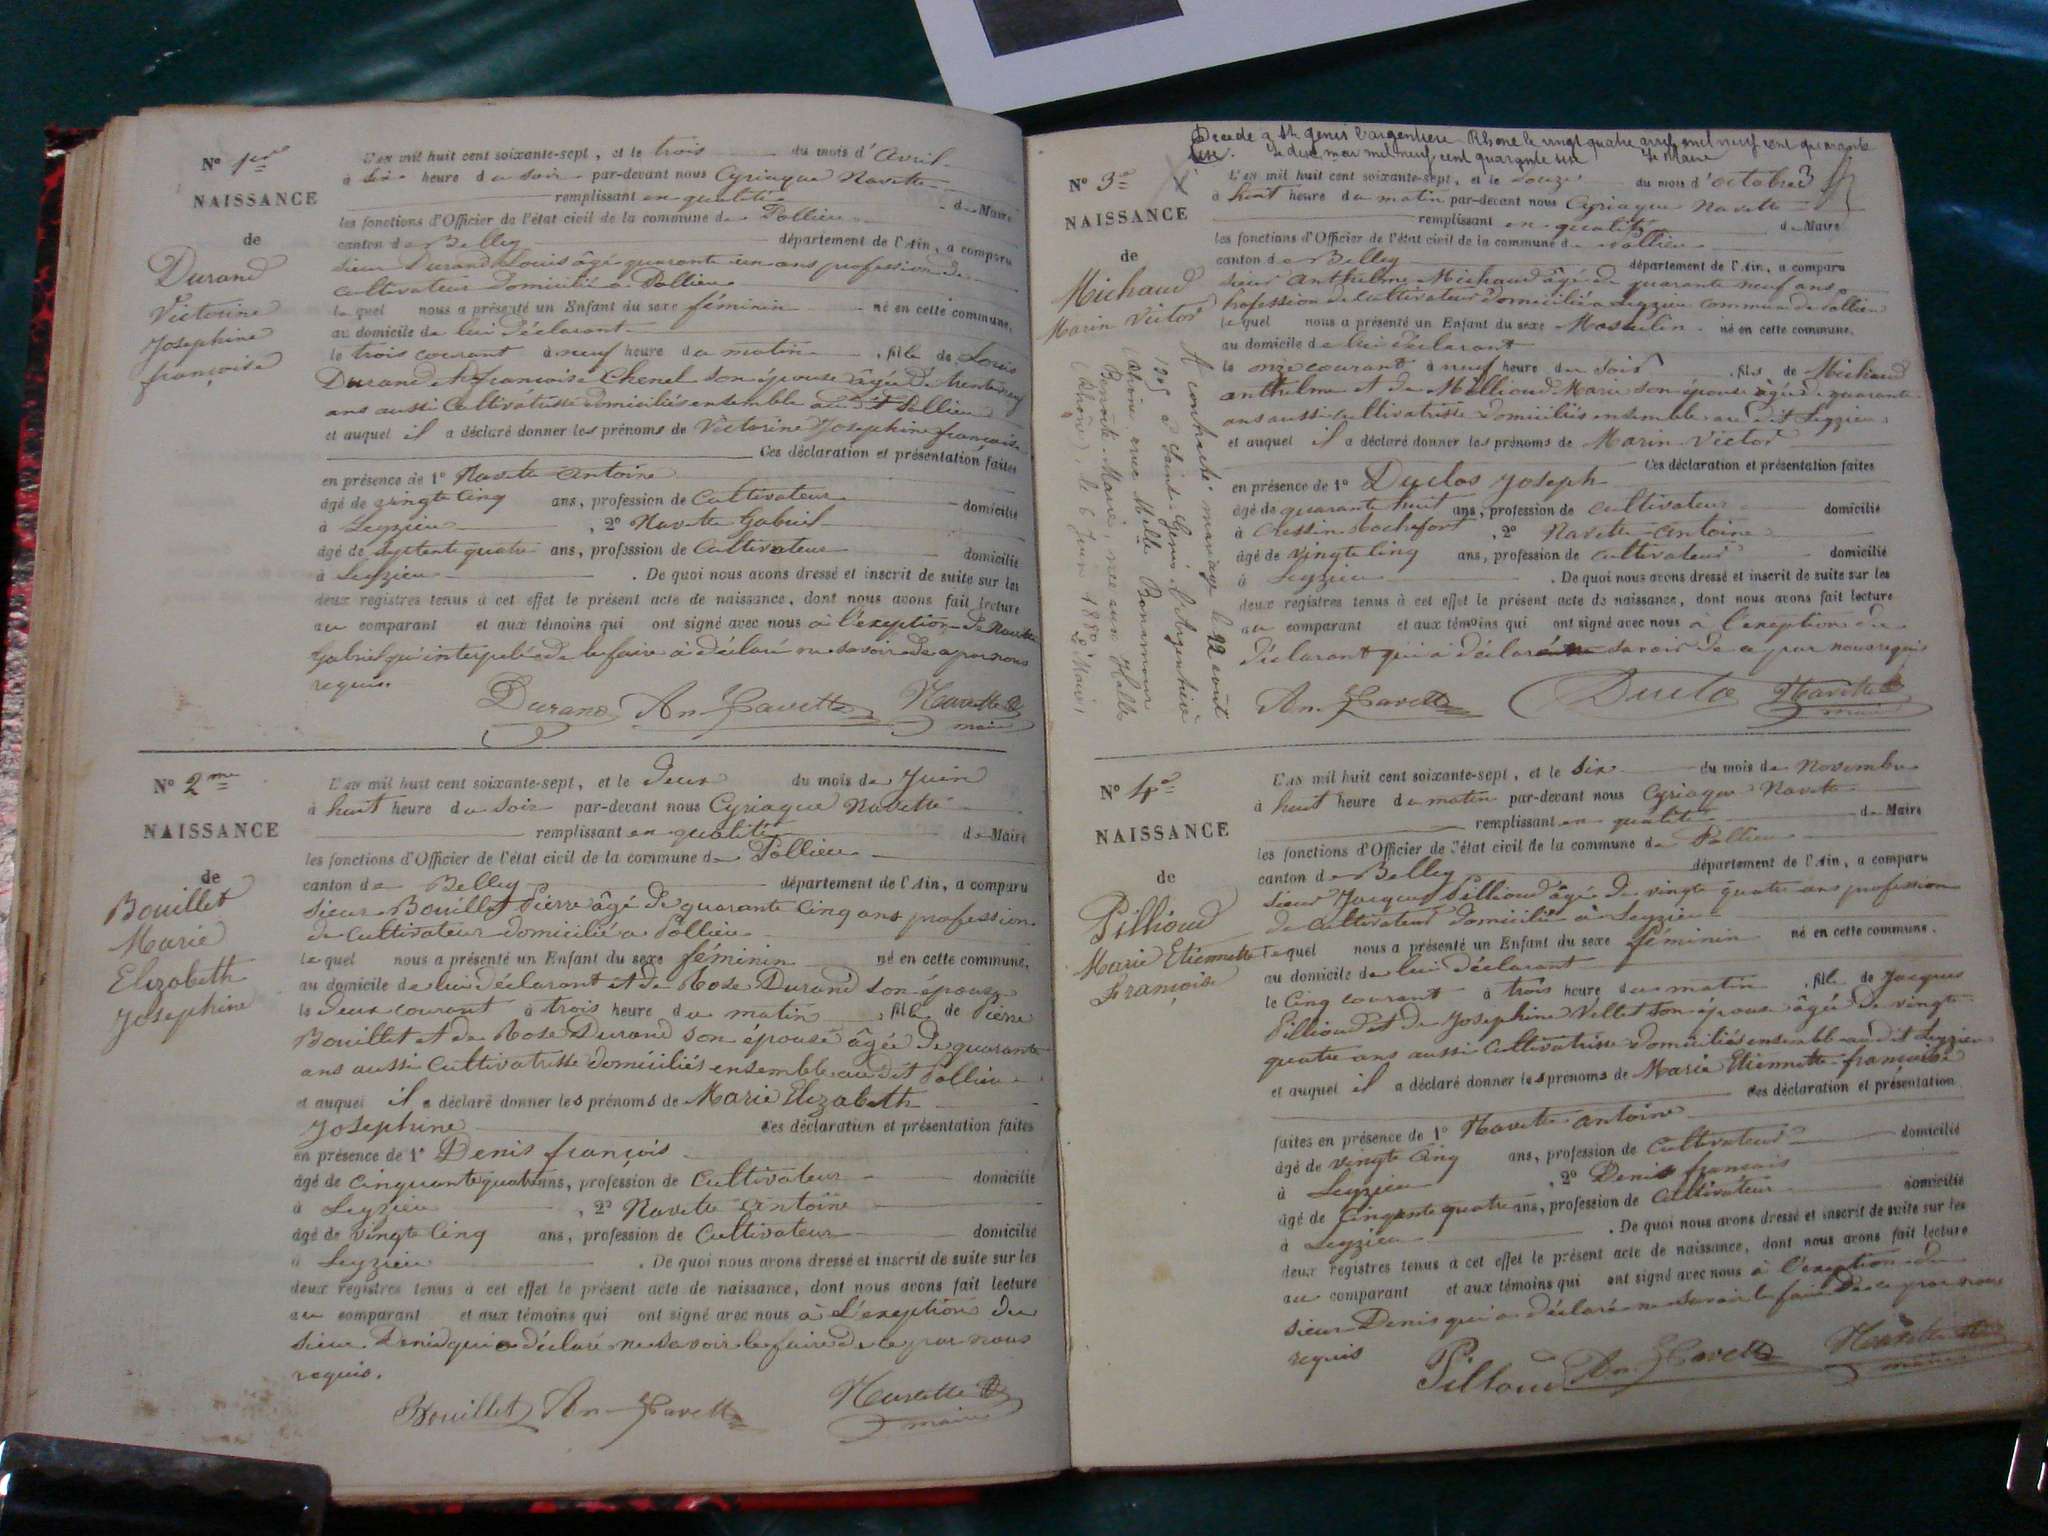 No 1ere
NAISSANCE
de
Durand
Victorine
Josephine
françoise
L'an mil huit cent soixante-sept, et le trois du mois d'avril
à six heure du soir par-devant nous Cyriaque Navette
remplissant en qualité de Maire
les fonctions d'Officier de l'état civil de la commune de Pollieu
canton de Belley département de l'Ain, a comparu
sieur Durand Louis âgé quarante un ans profession de
cultivateur domicilié à Pollieu
lequel nous a présenté un Enfant du sexe féminin né en cette commune,
au domicile de lui déclarant
le trois courant à neuf heure du matin, fille de Louis
Durand et françoise Chenel son épouse âgée de trente neuf
ans aussi Cultivatrisse domiciliés ensemble au dit Pollieu
et auquel il a déclaré donner les prénoms de Victorine Josephine françoise
Ces déclaration et présentation faites
en présence de 1° Navette antoine
âgé de vingte cinq ans, profession de Cultivateur domicilié
à Leyzieu, 2° Navette Gabriel
âgé de septente quatre ans, profession de Cultivateur domicilié
à Leyzieu. De quoi nous avons dressé et inscrit de suite sur les
deux registres tenus à cet effet le présent acte de naissance, dont nous avons fait lecture
au comparant et aux témoins qui ont signé avec nous à l'exeption de Navette
Gabriel qui interpelé de le faire a déclaré ne savoir de ce par nous
requis.
Durand An Navette Navette
maire
No 2me
NAISSANCE
de
Bouillet
Marie
Elizabeth
Josephine
L'an mil huit cent soixante-sept, et le deux du mois de Juin
à huit heure du soir par-devant nous Cyriaque Navette
remplissant en qualité de Maire
les fonctions d'Officier de l'état civil de la commune de Pollieu
canton de Belley département de l'Ain, a comparu
sieur Bouillet Pierre âgé de quarante cinq ans profession
de Cultivateur domicilié a Pollieu
lequel nous a présenté un Enfant du sexe féminin né en cette commune,
au domicile de lui déclarant et de Rose Durand son épouse
le deux courant à trois heure du matin, fille de Pierre
Bouillet et de Rose Durand son épouse âgée de quarante
ans aussi Cultivatrisse domiciliés ensemble au dit Pollieu
et auquel il a déclaré donner les prénoms de Marie Elizabeth
Josephine Ces déclaration et présentation faites
en présence de 1° Denis françois
âgé de cinquante quatre ans, profession de Cultivateur domicilié
à Leyzieu, 2° Navette Antoine
âgé de vingte cinq ans, profession de Cultivateur domicilié
à Leyzieu. De quoi nous avons dressé et inscrit de suite sur les
deux registres tenus à cet effet le présent acte de naissance, dont nous avons fait lecture
au comparant et aux témoins qui ont signé avec nous à l'exeption du
sieur Denis qui a déclaré ne savoir le faire de ce par nous
requis.
Bouillet An Navette Navette
maire
Decede a St genis l'argentiere Rhone le vingt quatre avril mil neuf cent quarante
six. Le dix mai mil neuf cent quarante six Le Maire
No 3e
NAISSANCE
de
Michaud
Marin Victor
A contracté mariage le 22 août
1905 à Saint-Genis l'Argentière
(Rhône) avec Melle Bonnamour
Benoîte Marie, née aux Halles
(Rhône), le 6 Juin 1880
Le Maire,
L'an mil huit cent soixante-sept, et le douze du mois d'octobre
à huit heure du matin par-devant nous Cyriaque Navette
remplissant en qualité de Maire
les fonctions d'Officier de l'état civil de la commune de Pollieu
canton de Belley département de l'Ain, a comparu
sieur Anthelme Michaud âgé de quarante neuf ans
profession de cultivateur domicilié a Leyzieu commune de Pollieu
lequel nous a présenté un Enfant du sexe Masculin né en cette commune,
au domicile de lui déclarant
le onze courant à neuf heure du soir, fils de Michaud
anthelme et de Millioud Marie son épouse âgée de quarante
ans aussi cultivatrisse domiciliés ensemble au dit Leyzieu
et auquel il a déclaré donner les prénoms de Marin Victor
Ces déclaration et présentation faites
en présence de 1° Duclos Joseph
âgé de quarante huit ans, profession de cultivateur domicilié
à Cressin Rochefort, 2° Navette antoine
âgé de vingte cinq ans, profession de cultivateur domicilié
à Leyzieu. De quoi nous avons dressé et inscrit de suite sur les
deux registres tenus à cet effet le présent acte de naissance, dont nous avons fait lecture
au comparant et aux témoins qui ont signé avec nous à l'exeption du
déclarant qui a déclaré ne savoir de ce par nous requis
An Navette Duclo Navette
maire
No 4e
NAISSANCE
de
Pillioud
Marie Etiennette
Françoise
L'an mil huit cent soixante-sept, et le six du mois de Novembre
à huit heure du matin par-devant nous Cyriaque Navette
remplissant en qualité de Maire
les fonctions d'Officier de l'état civil de la commune de Pollieu
canton de Belley département de l'Ain, a comparu
sieur Jacques Pillioud âgé de vingte quatre ans profession
de Cultivateur domicilié à Leyzieu
lequel nous a présenté un Enfant du sexe féminin né en cette commune,
au domicile de lui déclarant
le cinq courant à trois heure du matin, fille de Jacques
Pillioud et de Josephine Vellet son épouse âgée de vingte
quatre ans aussi Cultivatrisse domiciliés ensemble au dit Leyzieu
et auquel il a déclaré donner les prénoms de Marie Etiennette françoise
Ces déclaration et présentation
faites en présence de 1° Navette antoine
âgé de vingte cinq ans, profession de Cultivateur domicilié
à Leyzieu, 2° Denis françois
âgé de Cinqante quatre ans, profession de Cultivateur domicilié
à Leyzieu. De quoi nous avons dressé et inscrit de suite sur les
deux registres tenus à cet effet le présent acte de naissance, dont nous avons fait lecture
au comparant et aux témoins qui ont signé avec nous à l'exeption du
sieur Denis qui a déclaré ne savoir le faire de ce par nous
requis
Pilloud An Navette Navette
maire